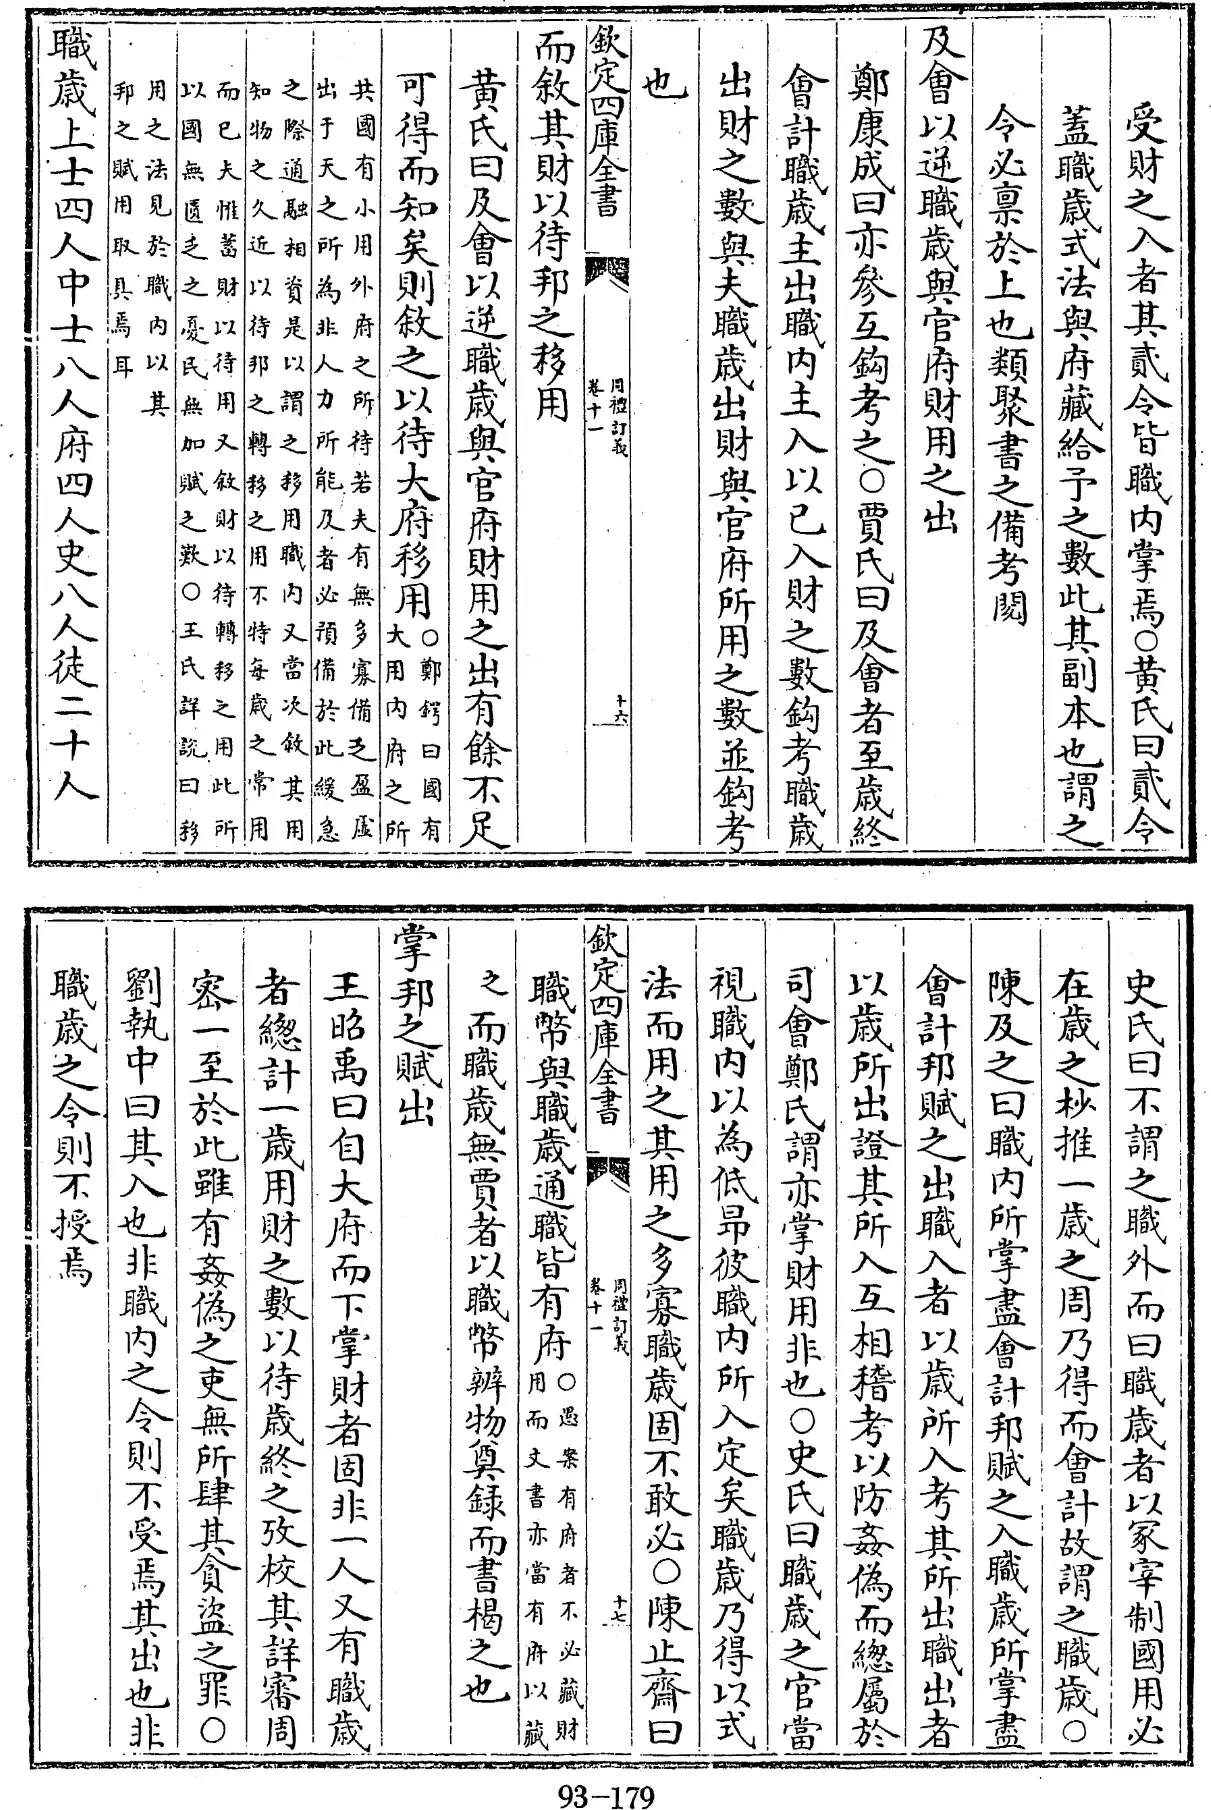 受財之入者其貳令皆職内掌焉○黄氏曰貳令
蓋職歲式法與府藏給予之數此其副本也謂之
令必稟於上也類聚書之備考閲
及會以逆職歲與官府財用之出
鄭康成曰亦參互鈎考之○賈氏曰及會者至歲終
會計職歲主出職内主入以已入財之數鈎考職歲
出財之數與夫職歲出財與官府所用之數並鈎考
也
欽定四庫全書
周禮訂義
卷十一
十六
而敘其財以待邦之移用
黄氏曰及會以逆職歲與官府財用之出有餘不足
可得而知矣則敘之以待大府移用○鄭鍔曰國有
大用内府之所
共國有小用外府之所待若夫有無多寡備乏盈虛
出于天之所為非人力所能及者必預備於此緩急
之際通融相資是以謂之移用職内又當次敘其用
知物之久近以待邦之轉移之用不特每歲之常用
而已夫惟蓄財以待用又敘財以待轉移之用此所
以國無匱乏之憂民無加賦之歎○王氏詳説曰移
用之法見於職内以其
邦之賦用取具焉耳
職歲上士四人中士八人府四人史八人徒二十人
史氏曰不謂之職外而曰職歲者以冢宰制國用必
在歲之杪推一歲之周乃得而會計故謂之職歲○
陳及之曰職内所掌盡會計邦賦之入職歲所掌盡
會計邦賦之出職入者以歲所入考其所出職出者
以歲所出證其所入互相稽考以防姦偽而總屬於
司會鄭氏謂亦掌財用非也○史氏曰職歲之官當
視職内以為低昻彼職内所入定矣職歲乃得以式
法而用之其用之多寡職歲固不敢必○陳止齋曰
欽定四庫全書
周禮訂義
卷十一
十七
職幣與職歲通職皆有府○愚案有府者不必藏財
用而文書亦當有府以藏
之而職歲無賈者以職幣辨物奠録而書楬之也
掌邦之賦出
王昭禹曰自大府而下掌財者固非一人又有職歲
者總計一歲用財之數以待歲終之攷校其詳審周
密一至於此雖有姦偽之吏無所肆其貪盜之罪○
劉執中曰其入也非職内之令則不受焉其出也非
職歲之令則不授焉
93-179